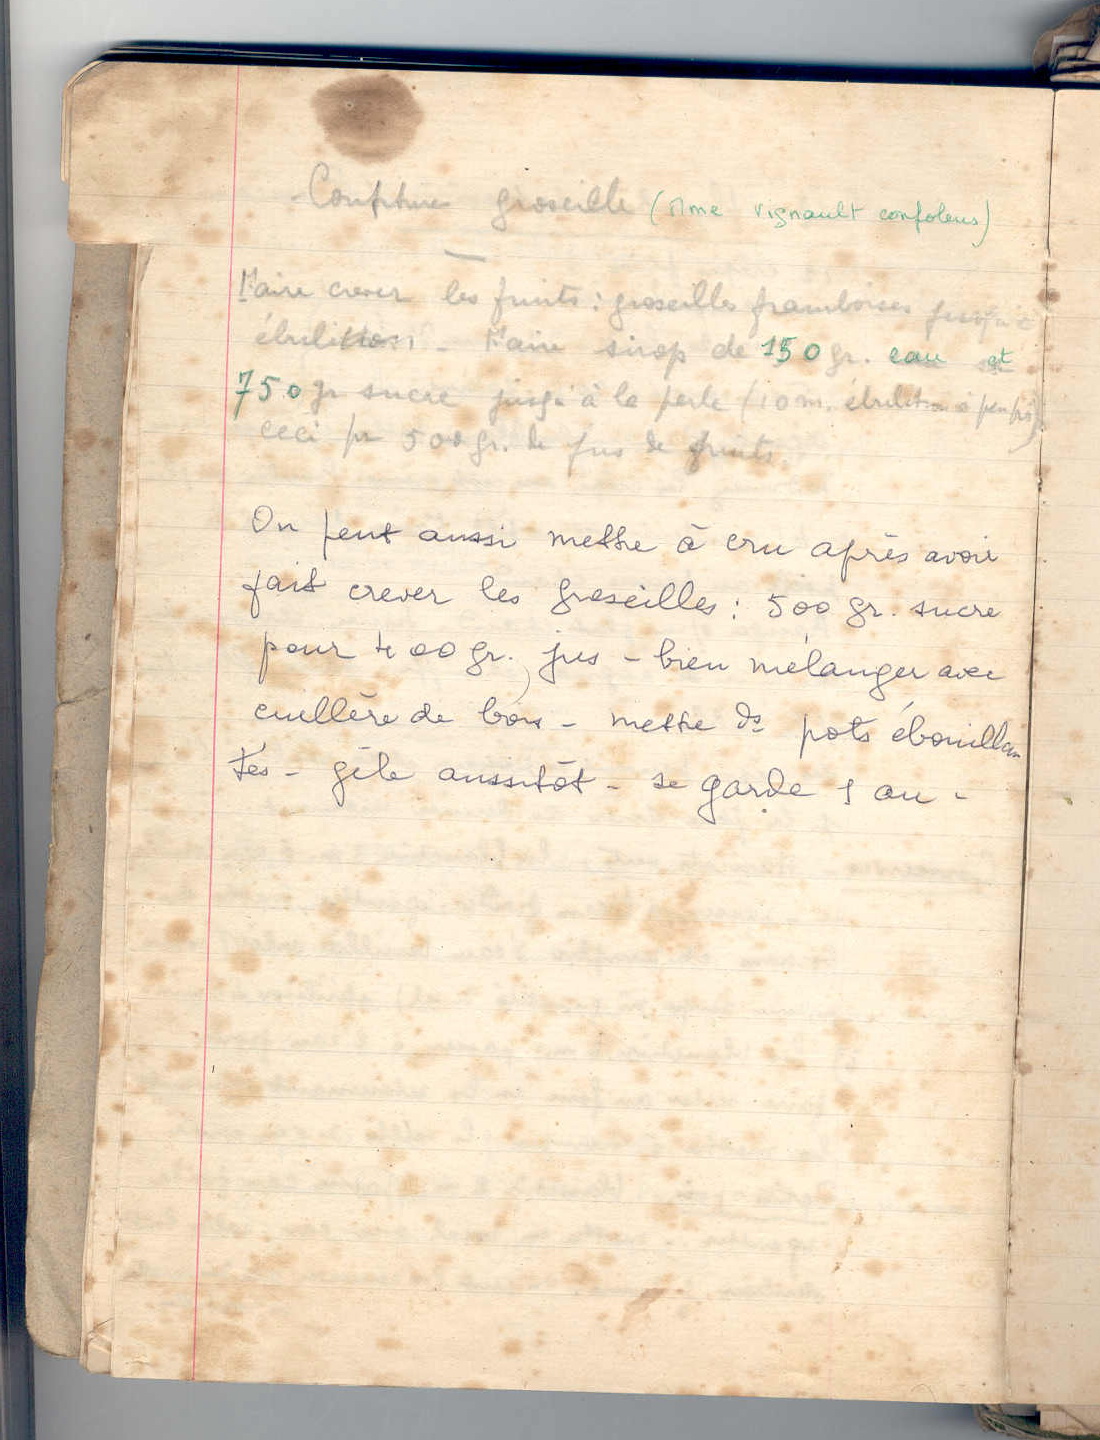 Confiture groseille (Mme Vignault Confolens)
Faire crever les fruits : groseilles framboises jusqu'à
ébulition. Faire sirop de 150 gr. eau et
750 gr sucre jusqu'à la perle (10 m. ébulition à peu près)
ceci pr 500 gr. de jus de fruits.
On peut aussi mettre à cru après avoir
fait crever les groseilles : 500 gr. sucre
pour 400 gr. jus - bien mélanger avec
cuillère de bois - mettre ds pots ébouillan
tés - gèle aussitôt - se garde 1 an -